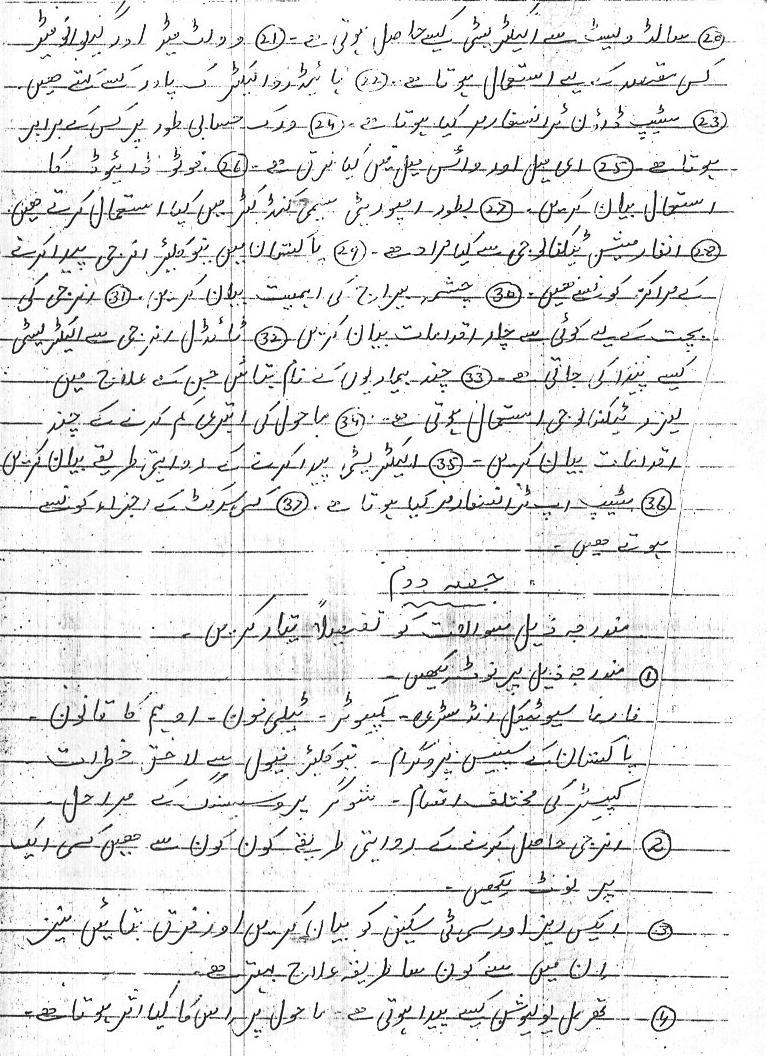 (20) سالڈ ویسٹ سے الیکٹریسٹی کیسے حاصل ہوتی ہے - (21) وولٹ میٹر اور گیلوانومیٹر
کس مقصد کے لیے استعمال ہوتا ہے - (22) ہائیڈرو الیکٹرک پاور کسے کہتے ھیں -
(23) سٹیپ ڈاؤن ٹرانسفارمر کیا ہوتا ہے - (24) ورک حسابی طور پر کس کے برابر
ہوتا ہے - (25) ای میل اور وائس میل میں کیا فرق ہے - (26) فوٹو ڈائیوڈ کا
استعمال بیان کریں - (27) بطور امپیورٹی سیمی کنڈکٹر میں کیا استعمال کرتے ھیں
(28) انفارمیشن ٹیکنالوجی سے کیا مراد ہے - (29) پاکستان میں نیوکلیئر انرجی پیدا کرنے
کے مراکز کونسے ھیں - (30) چشمہ بیراج کی اہمیت بیان کریں - (31) انرجی کی
بچت کے لیے کوئی سے چار اقدامات بیان کریں (32) ٹائڈل انرجی سے الیکٹریسٹی
کیسے پیدا کی جاتی ہے - (33) چند بیماریوں کے نام بتائیں جن کے علاج میں
لیزر ٹیکنالوجی استعمال ہوتی ہے - (34) ماحول کی ابتری کم کرنے کے چند
اقدامات بیان کریں - (35) الیکٹریسٹی پیدا کرنے کے روایتی طریقے بیان کریں
(36) سٹیپ اپ ٹرانسفارمر کیا ہوتا ہے - (37) کسی سرکٹ کے اجزاء کونسے
ہوتے ھیں -
حصہ دوم
مندرجہ ذیل سوالات کو تفصیلاً تیار کریں -
(1) مندرجہ ذیل پر نوٹ لکھیں -
فارماسیوٹیکل انڈسٹری - کمپیوٹر - ٹیلی فون - اوہم کا قانون -
پاکستان کے سپیس پروگرام - نیوکلیئر فیول سے لاحق خطرات
کپیسٹر کی مختلف اقسام - شوگر پروسیسنگ کے مراحل -
(2) انرجی حاصل کرنے کے روایتی طریقے کون کون سے ھیں کسی ایک
پر نوٹ لکھیں -
(3) ایکس ریز اور سی ٹی سکین کو بیان کریں اور فرق بتائیں نیز
ان میں سے کون سا طریقہ علاج بہتر ہے -
(4) تھرمل پولیوشن کیسے پیدا ہوتی ہے - ماحول پر اس کا کیا اثر ہوتا ہے -